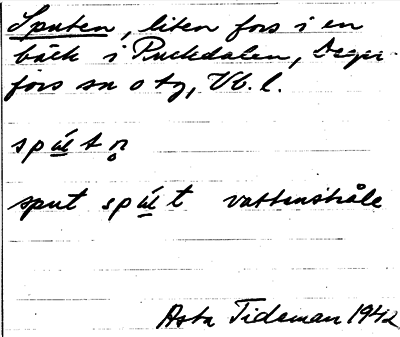 Sputen, liten fors i en
bäck i Puckdalen, Deger-
fors sn o tg, Vb. l.
spút
sput spút vattenstråle
Asta Tideman 1942